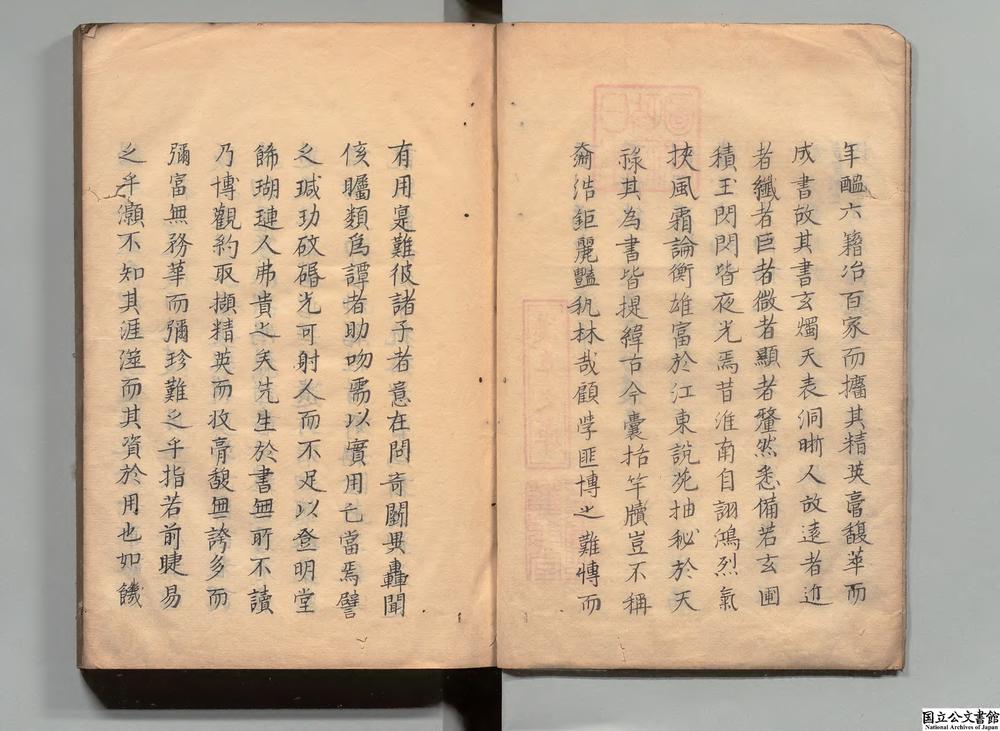 年醞六籍冶百家而攟其精英膏馥萃而
成書故其書玄燭天表洞晣人故遠者近
者纖者巨者微者顯者釐然悉備若玄圃
積玉閃閃皆夜光焉昔淮南自詡鴻烈氣
挾風霜論衡雄富於江東說苑抽秘於天
祿其為書皆提緯古今囊括竿牘豈不稱
奫浩鉅麗豔秇林哉顧學匪博之難慱而
有用寔難彼諸子者意在問奇闢異轟聞
侅矚類爲譚者助吻需以實用亡當焉譬
之瑊玏砇碈光可射人而不足以登明堂
餙瑚璉人弗貴之矣先生於書無所不讀
乃博觀約取擷精英而收膏馥無誇多而
彌富無務華而彌珍難之乎指若前睫易
之乎灝不知其涯澨而其資於用也如饑
国立公文書館
National Archives of Japan